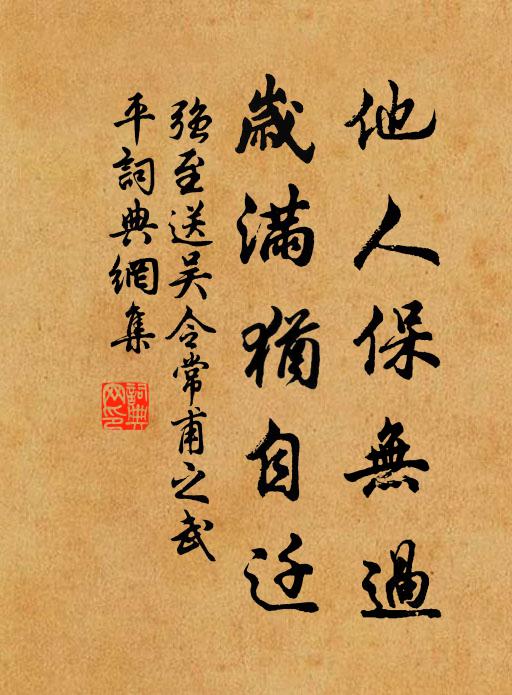 他人保無過
歲滿猶自迁
強至送吴令常甫之武
平詞典網集
詞典
网印